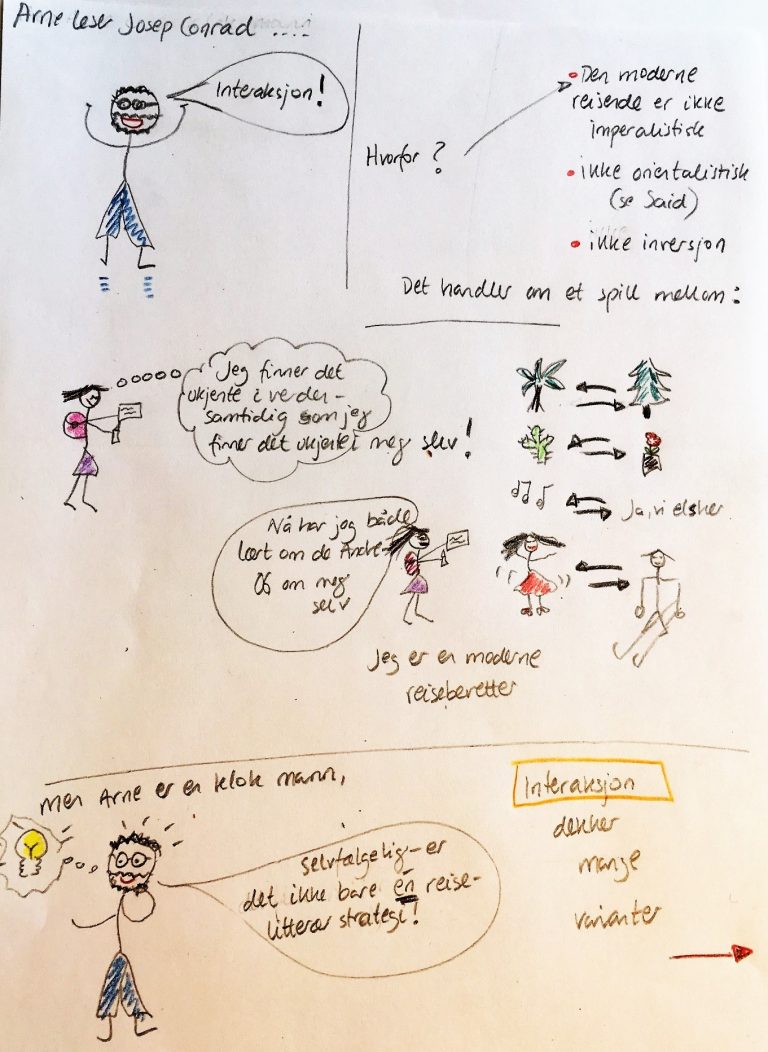 Arne leser Josep Conrad ....
Interaksjon!
Hvorfor?
Den moderne
reisende er ikke
imperalistisk
ikke orientalistisk
(se Said)
ikke inversjon
Det handler om et spill mellom:
Jeg finner det
ukjente i verden -
samtidig som jeg
finner det ukjente i meg selv!
Ja, vi elsker
Nå har jeg både
lært om de Andre
Og om meg
selv
Jeg er en moderne
reiseberetter
Men Arne er en klok mann,
selvfølgelig er
det ikke bare én reise-
litterær strategi!
Interaksjon
dekker
mange
varianter